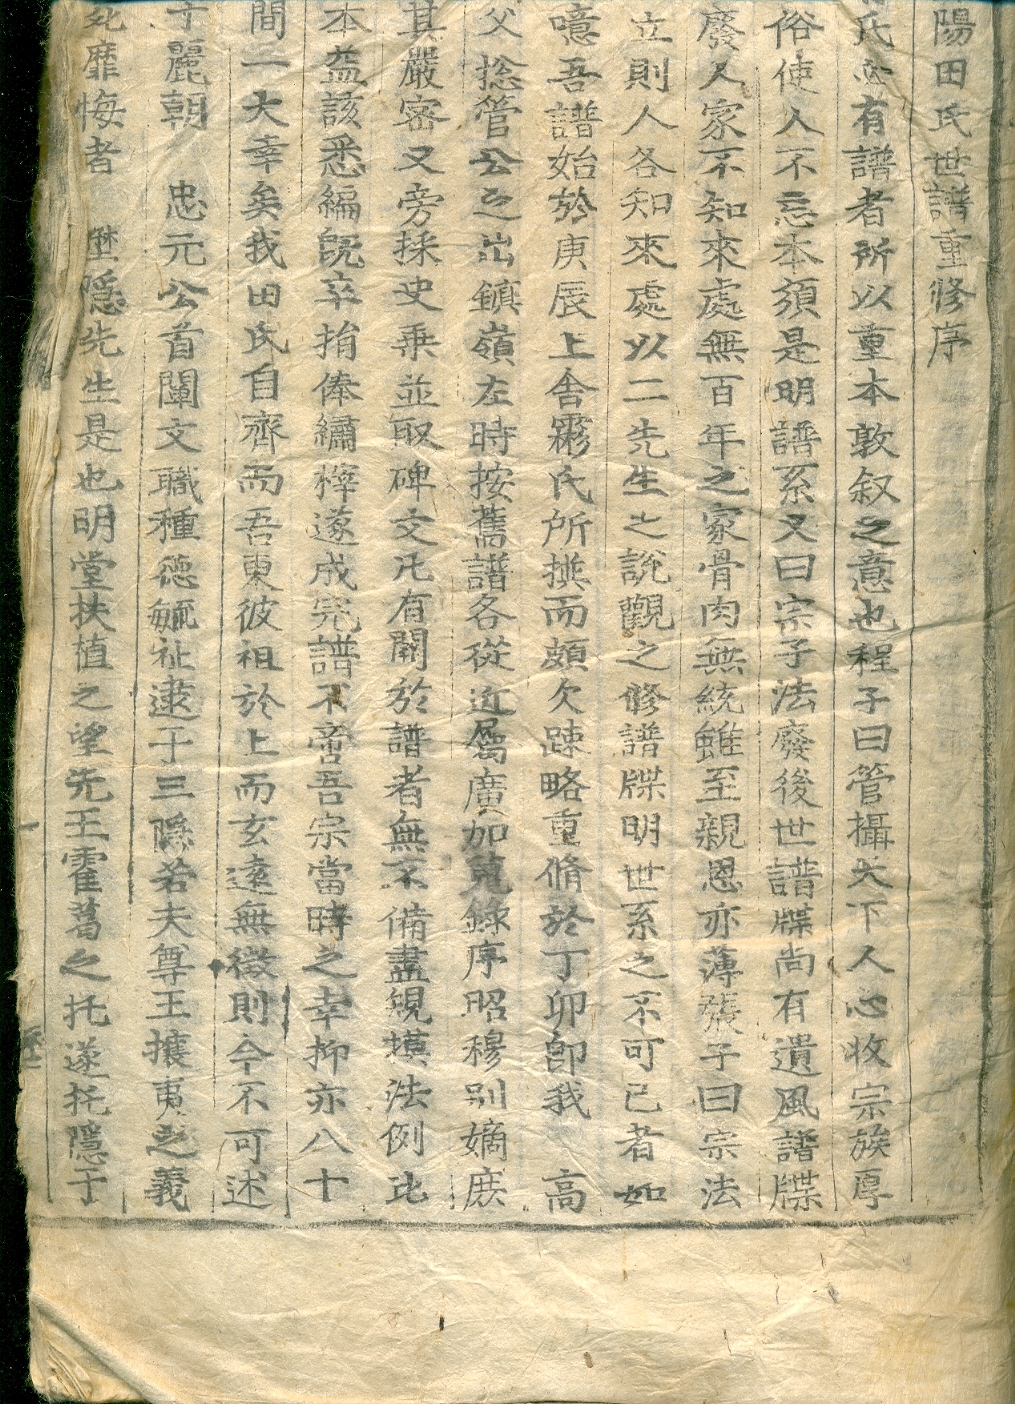 陽田氏世譜重修序
氏之有譜者所以重本敦叙之意也程子曰管攝天下人心收宗族厚
俗使人不忘本須是明譜系又曰宗子法廢後世譜牒尚有遺風譜牒
廢人家不知來處無百年之家骨肉無統雖至親恩亦薄張子曰宗法
立則人各知來處以二先生之說觀之修譜牒明世系之不可已者如
噫吾譜始於庚辰上舍霦氏所撰而頗欠踈略重脩於丁卯卽我 高
父捴管公之出鎮嶺左時按舊譜各從近屬廣加蒐錄序昭穆別嫡庶
其嚴密又旁採史乘並取碑文凡有關於譜者無不備盡䂓摸法例比
本益該悉編旣卒捐俸繡梓遂成完譜不啻吾宗當時之幸抑亦八十
間一大幸矣我田氏自齊而吾東彼祖於上而玄遠無徵則今不可述
于麗朝 忠元公首闡文職種德毓祉逮于三隱若夫尊王攘夷之義
死靡悔者 壄隱先生是也明堂扶植之望先王霍葛之托遂托隱于